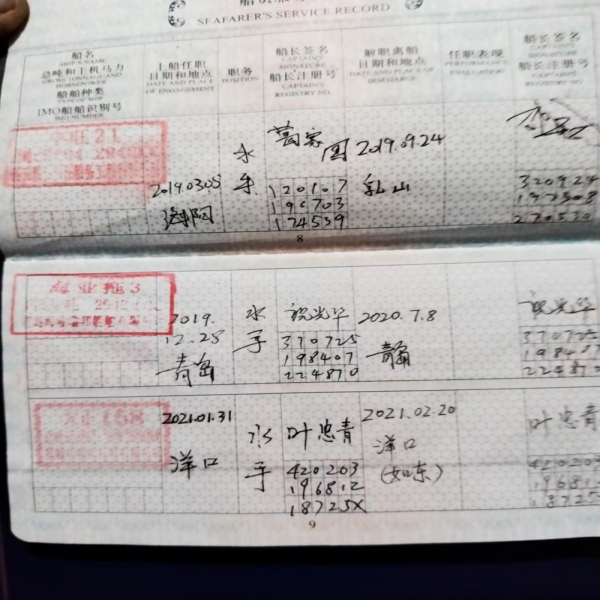 SEAFARER'S SERVICE RECORD
船名
SHIP'S NAME
总吨和主机马力
GROSS TONNAGE AND
HORSEPOWER
船舶种类
TYPE OF SHIP
IMO船舶识别号
IMO NUMBER
上船任职
日期和地点
DATE AND PLACE
OF ENGAGEMENT
职务
POSITION
船长签名
CAPTAIN'S
SIGNATURE
船长注册号
CAPTAIN'S
REGISTRY NO.
解职离船
日期和地点
DATE AND PLACE OF
DISCHARGE
任职表现
PERFORMANCE
EVALUATION
船长签名
CAPTAIN'S
SIGNATURE
船长注册号
CAPTAIN'S
REGISTRY NO.
21
20190305
海阳
水手
2019.09.24
乳山
120107
196703
174539
320924
197508
270530
8
3
2019.
12.25
青岛
水手
祝光华
370725
198407
224870
2020.7.8
青岛
祝光华
370725
19840
22487
158
2021.01.31
洋口
水手
叶忠青
420203
196812
18725X
2021.02.20
洋口
(如东)
叶忠青
420203
19681
18725
9